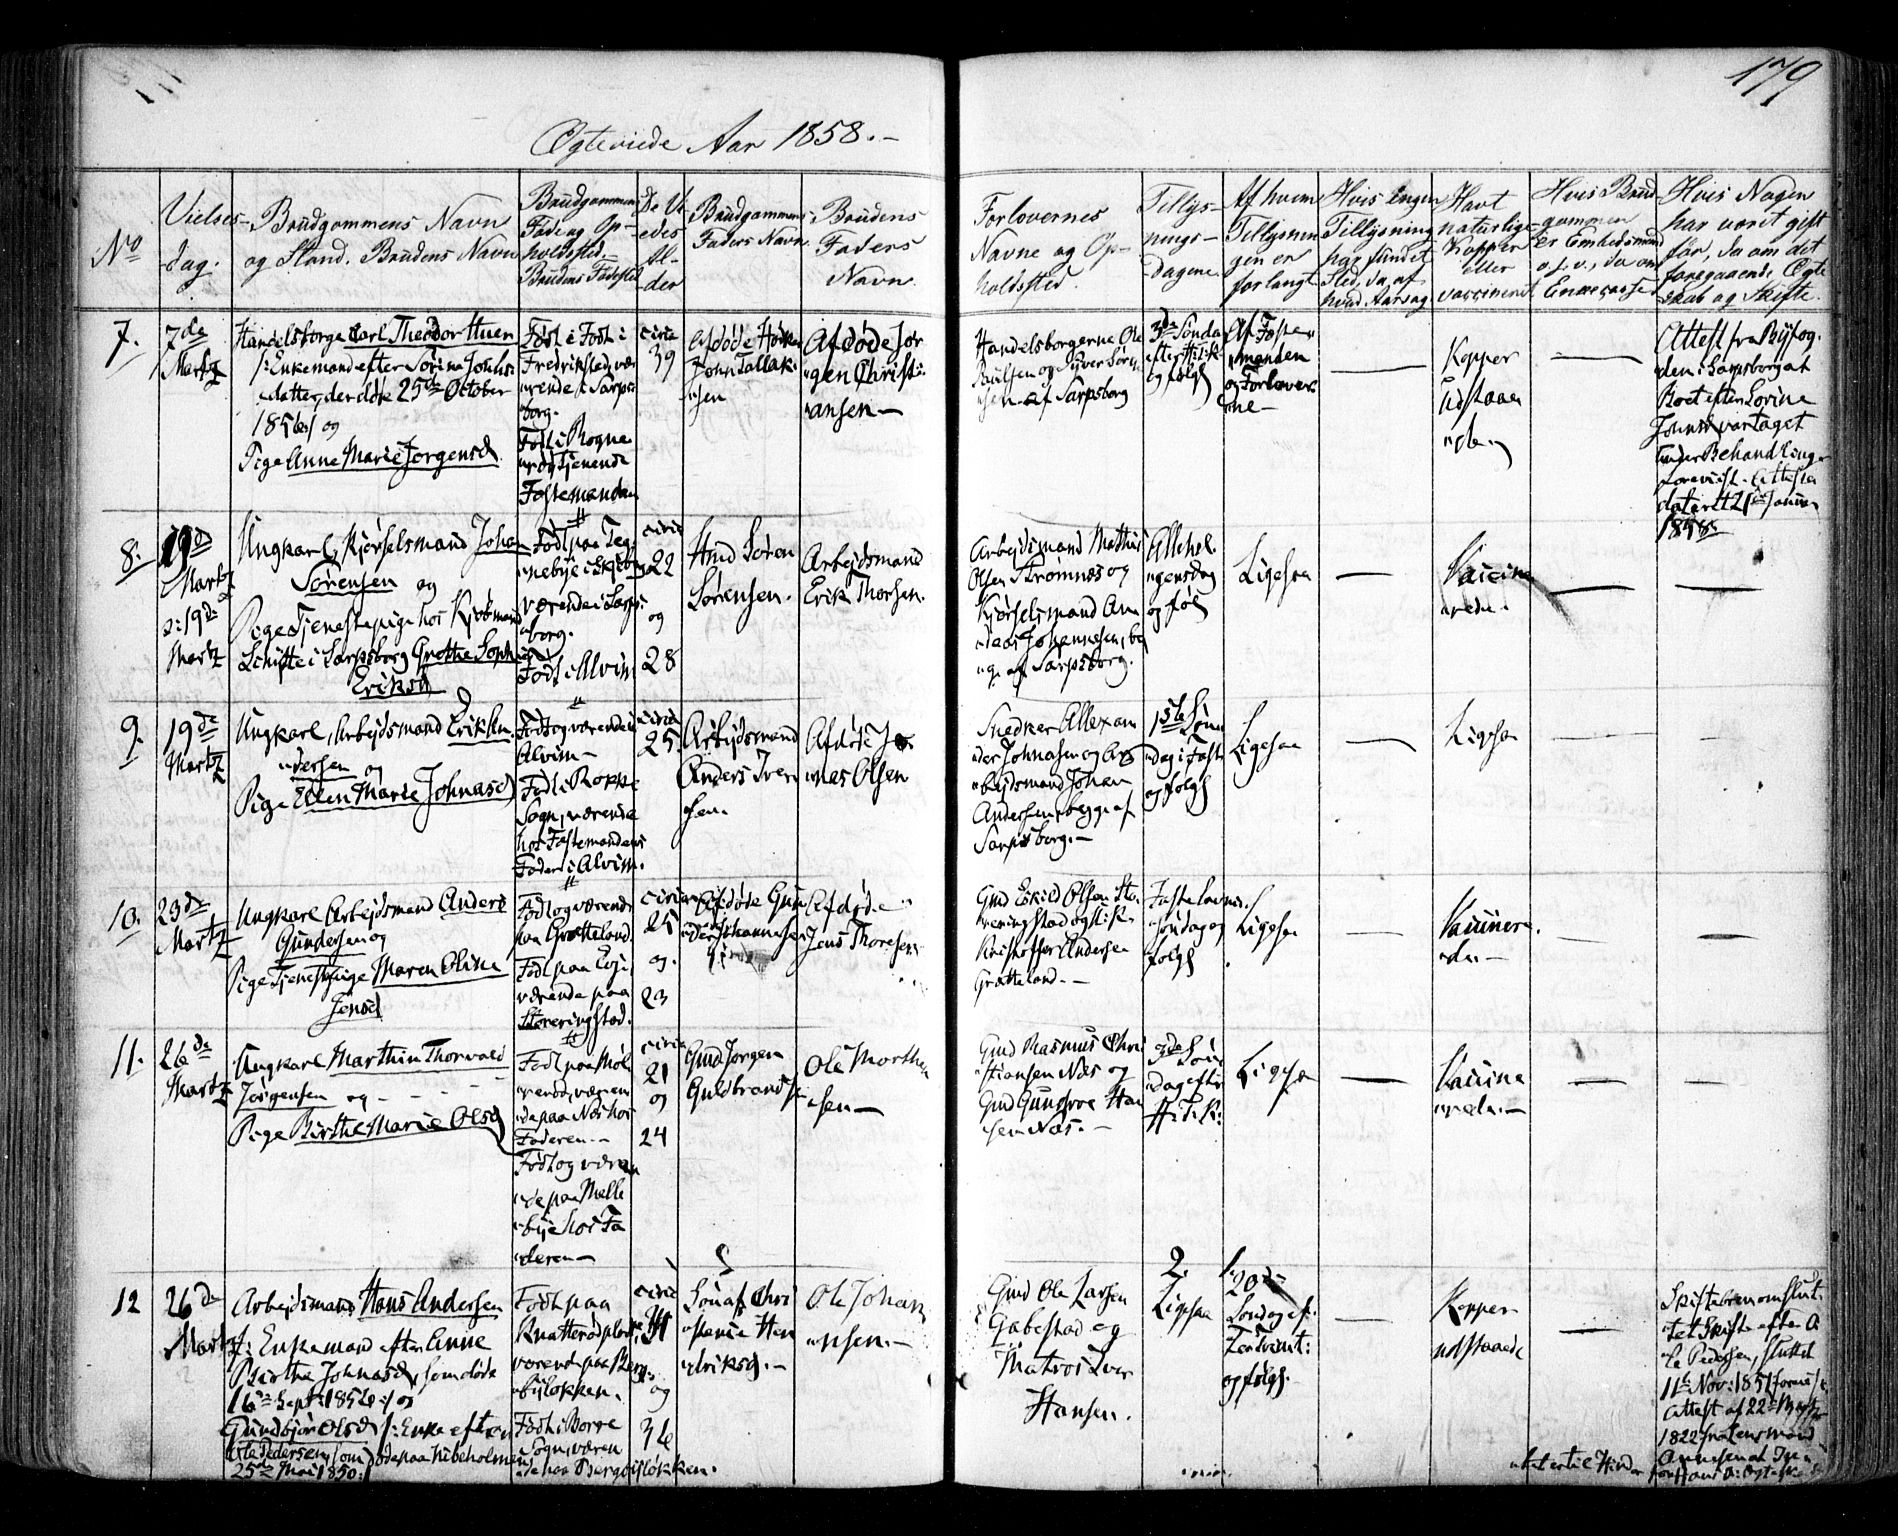 179
Ægteviede Aar 1858.-
No
Vielses-
dag.
Brudgommens Navn
og Stand. Brudens Navn
Brudgommens
Føde og Op-
holdsted.
Brudens Fødested
De Vi
edes
Al-
der
Brudgommens
Faders Navn.
Brudens
Faders
Navn.
Forlovernes
Navne og Op-
holdsted.
Tillys-
nings-
dagene
Af hvem
Tillysnin
gen er
forlangt
Hvis Ingen
Tillysning
har fundet
Sted, da, af
hvad Aarsag.
Havt
naturlige
Kopper
eller
vaccineret
Hvis Brud
gommen
er Embedsmand
o.s.v., da om
Enkecassed
Hvis Nogen
har været gift
før, da om det
foregaaende Ægte
skab og Skifte.
7.
7de
Martz
Handelsborger Carl Theodor Huen
/: Enkemand efter Sørine Johns:
datter, der døde 25de October
1856:/ og
Pige Anne Marie Jørgensd
Født i
Fredriksted, væ
rende i Sarps
borg.
Født i Rogne
Tjenende
Fæstemanden
circa
39
Afdøde
John Tallak:
sen
Afdøde Jør
gen Christi:
ansen-
Handelsborgerne Ole
Paulsen og Syver Søren
sen af Sarpsborg
3de Sønda
efter H:3:K:
og følg
Af Fæste
manden
og Forlover
ne-
Kopper
udstaaen
de.
Attest fra Byfog
den i Sarpsborg at
Boet efter Sorine
Johnsd var taget
under Behandling
forevist. Attesten
dateret 21de Januar
1858:
8.
19de
Martz
ɔ: 19de
Martz
Ungkarl, Kjørselsmand Johan
Sørensen og
Pige Tjenestepige hos Kjøbmand
Schitte i Sarpsborg Grethe Sophie
Eriksd
Født paa Teg
nebye i Skjeberg
værende i Sarps:
borg.
Født i Alvim
circa
22
og
28
Hmd Søren
Sørensen.
Arbejdsmand
Erik Thorsen.
Arbejdsmand Mathis
Olsen Strømnæs og
Kjørselsmand An
dreas Johannesen, beg
ge af Sarpsborg.
Allehel
gensdag
og følg
Ligesaa
Vaccine
rede.
9.
19de
Martz
Ungkarl, Arbejdsmand Erik An
dersen og
Pige Ellen Marie Johnasd
Født og værende i
Alvim-
Født i Rokke
Sogn, værende
hos Fæstemandens
Fader i Alvim.
circa
25
Arbejdsmand
Anders Iver
sen.
Afdøde Jo
nas Olsen
Snedker Allexan
der Johnasen og Ar
bejdsmand Johan
Andersen, begge af
Sarpsborg.-
1ste Søn
dag i Faste
og følg
Ligesaa
Ligesaa
10.
23de
Martz
Ungkarl Arbejdsmand Anders
Gundersen og
Pige Tjenestepige Maren Oline
Jensd
Født og værende
paa Gratteland.
Født paa
værende paa
Storeringstad.
circa
25
og.
23
Afdøde Gun
der Johannesen
Afdøde
Jens Thoresen
Gmd Eskild Olsen Sto
reringstad og H:K:
Kristoffer Andersen
Gratteland.-
Fastelavns
søndag og
følg
Ligesaa
Vaccinere
de.-
11.
26de
Martz
Ungkarl Marthin Thorvald
Jørgensen og-
Pige Birthe Marie Olsd
Født paa
væren
de paa Næs hos
Faderen.-
Født og væren
de paa Melle
bye hos Fa
deren-
circa
21
og
24
Gmd Jørgen
Guldbrandsen
Ole Morthen
sen-
Gmd Rasmus Chri
stiansen Næs og
Gmd Gunerøe Han
sen Næs.-
3de Søn
dag efter
H:3:K:
Ligesaa
Vaccine
rede.-
12
26de
Martz
Arbejdsmand Hans Andersen
/: Enkemand efter Anne
Birthe Johnasd, som døde
16de Sept: 1856:/ og
Gunbjør Olsd /: Enke efter
Ole Pedersen, som døde paa Nibeholmen
25de Mai 1850:/
Født paa
Knatterødpladsen
værende paa Berg
byløkken.
Født i Borre
Sogn, væren
de paa Bergbyløkken.
circa
og
36
Søn af Chri
stence Hen
driksd.-
Ole Johan
nsen.-
Gmd Ole Larsen
Gabestad og
Matros Iver
Hansen.
2.
Ligesaa
1.
20de
Søndag ef.
Trefoldigh:
og følg.
Kopper
udstaaede
Skiftebrev om slut
tet Skifte efter O
le Pedersen, sluttet
11te Nov: 1851 forevist.
Attest af 22de Martz